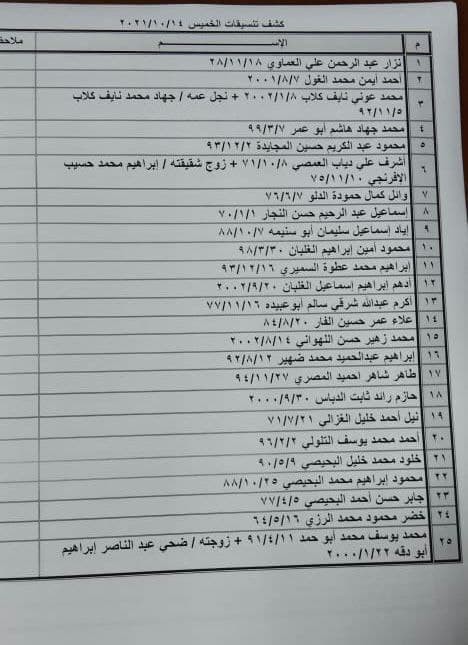 كشف تنسيقات الخميس ٢٠٢١/١٠/١٤
م الإســـــــم ملاحظ
١ نزار عبد الرحمن علي العماوي ٢٨/١١/١٨
٢ أحمد أيمن محمد الغول ٢٠٠١/٨/٧
٣ محمد عوني نايف كلاب ٢٠٠٢/١/٨ + نجل عمه / جهاد محمد نايف كلاب
٩٢/١١/٥
٤ محمد جهاد هاشم أبو عمر ٩٩/٣/٧
٥ محمود عبد الكريم حسين المجايدة ٩٣/١٢/٢
٦ أشرف علي دياب العمصي ٧١/١٠/٨ + زوج شقيقته / إبراهيم محمد حسيب
الافرنجي ٧٥/١١/١٠
٧ وائل كمال حمودة الدلو ٧٦/٦/٧
٨ إسماعيل عبد الرحيم حسن النجار ٧٠/١/١
٩ إياد إسماعيل سليمان أبو سنيمه ٨٨/١٠/٧
١٠ محمود أمين إبراهيم الغلبان ٩٨/٣/٣٠
١١ إبراهيم محمد عطوة السميري ٩٣/١٢/١٦
١٢ أدهم إبراهيم إسماعيل الغلبان ٢٠٠٢/٩/٢٠
١٣ أكرم عبدالله شرقي سالم أبوعبيده ٧٧/١١/١٦
١٤ علاء عمر حسين الفار ٨٤/٨/٢٠
١٥ محمد زهير حسن اللهواني ٢٠٠٢/٨/١٤
١٦ إبراهيم عبدالحميد محمد ضهير ٩٢/٨/١٢
١٧ طاهر شاهر احميد المصري ٩٤/١١/٢٧
١٨ حازم رائد ثابت الدباس ٢٠٠٠/٩/٣٠
١٩ نيل أحمد خليل الغزالي ٧١/٧/٢١
٢٠ أحمد محمد يوسف التلولي ٩٦/٢/٢
٢١ خلود محمد خليل البحيصي ٩٠/٥/٩
٢٢ محمود إبراهيم محمد البحيصي ٨٨/١٠/٢٥
٢٣ جابر حسن أحمد البحيصي ٧٧/٤/٥
٢٤ خضر محمود محمد الرزي ٦٤/٥/١٦
٢٥ محمد يوسف محمد أبو حمد ٩١/٤/١١ + زوجته / ضحي عبد الناصر إبراهيم
أبو دقه ٢٠٠٠/١/٢٢